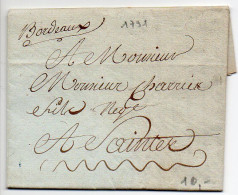 Bordeaux
1791
A Monsieur
Monsieur Charrier
fils Negt
A Saintes
10,-